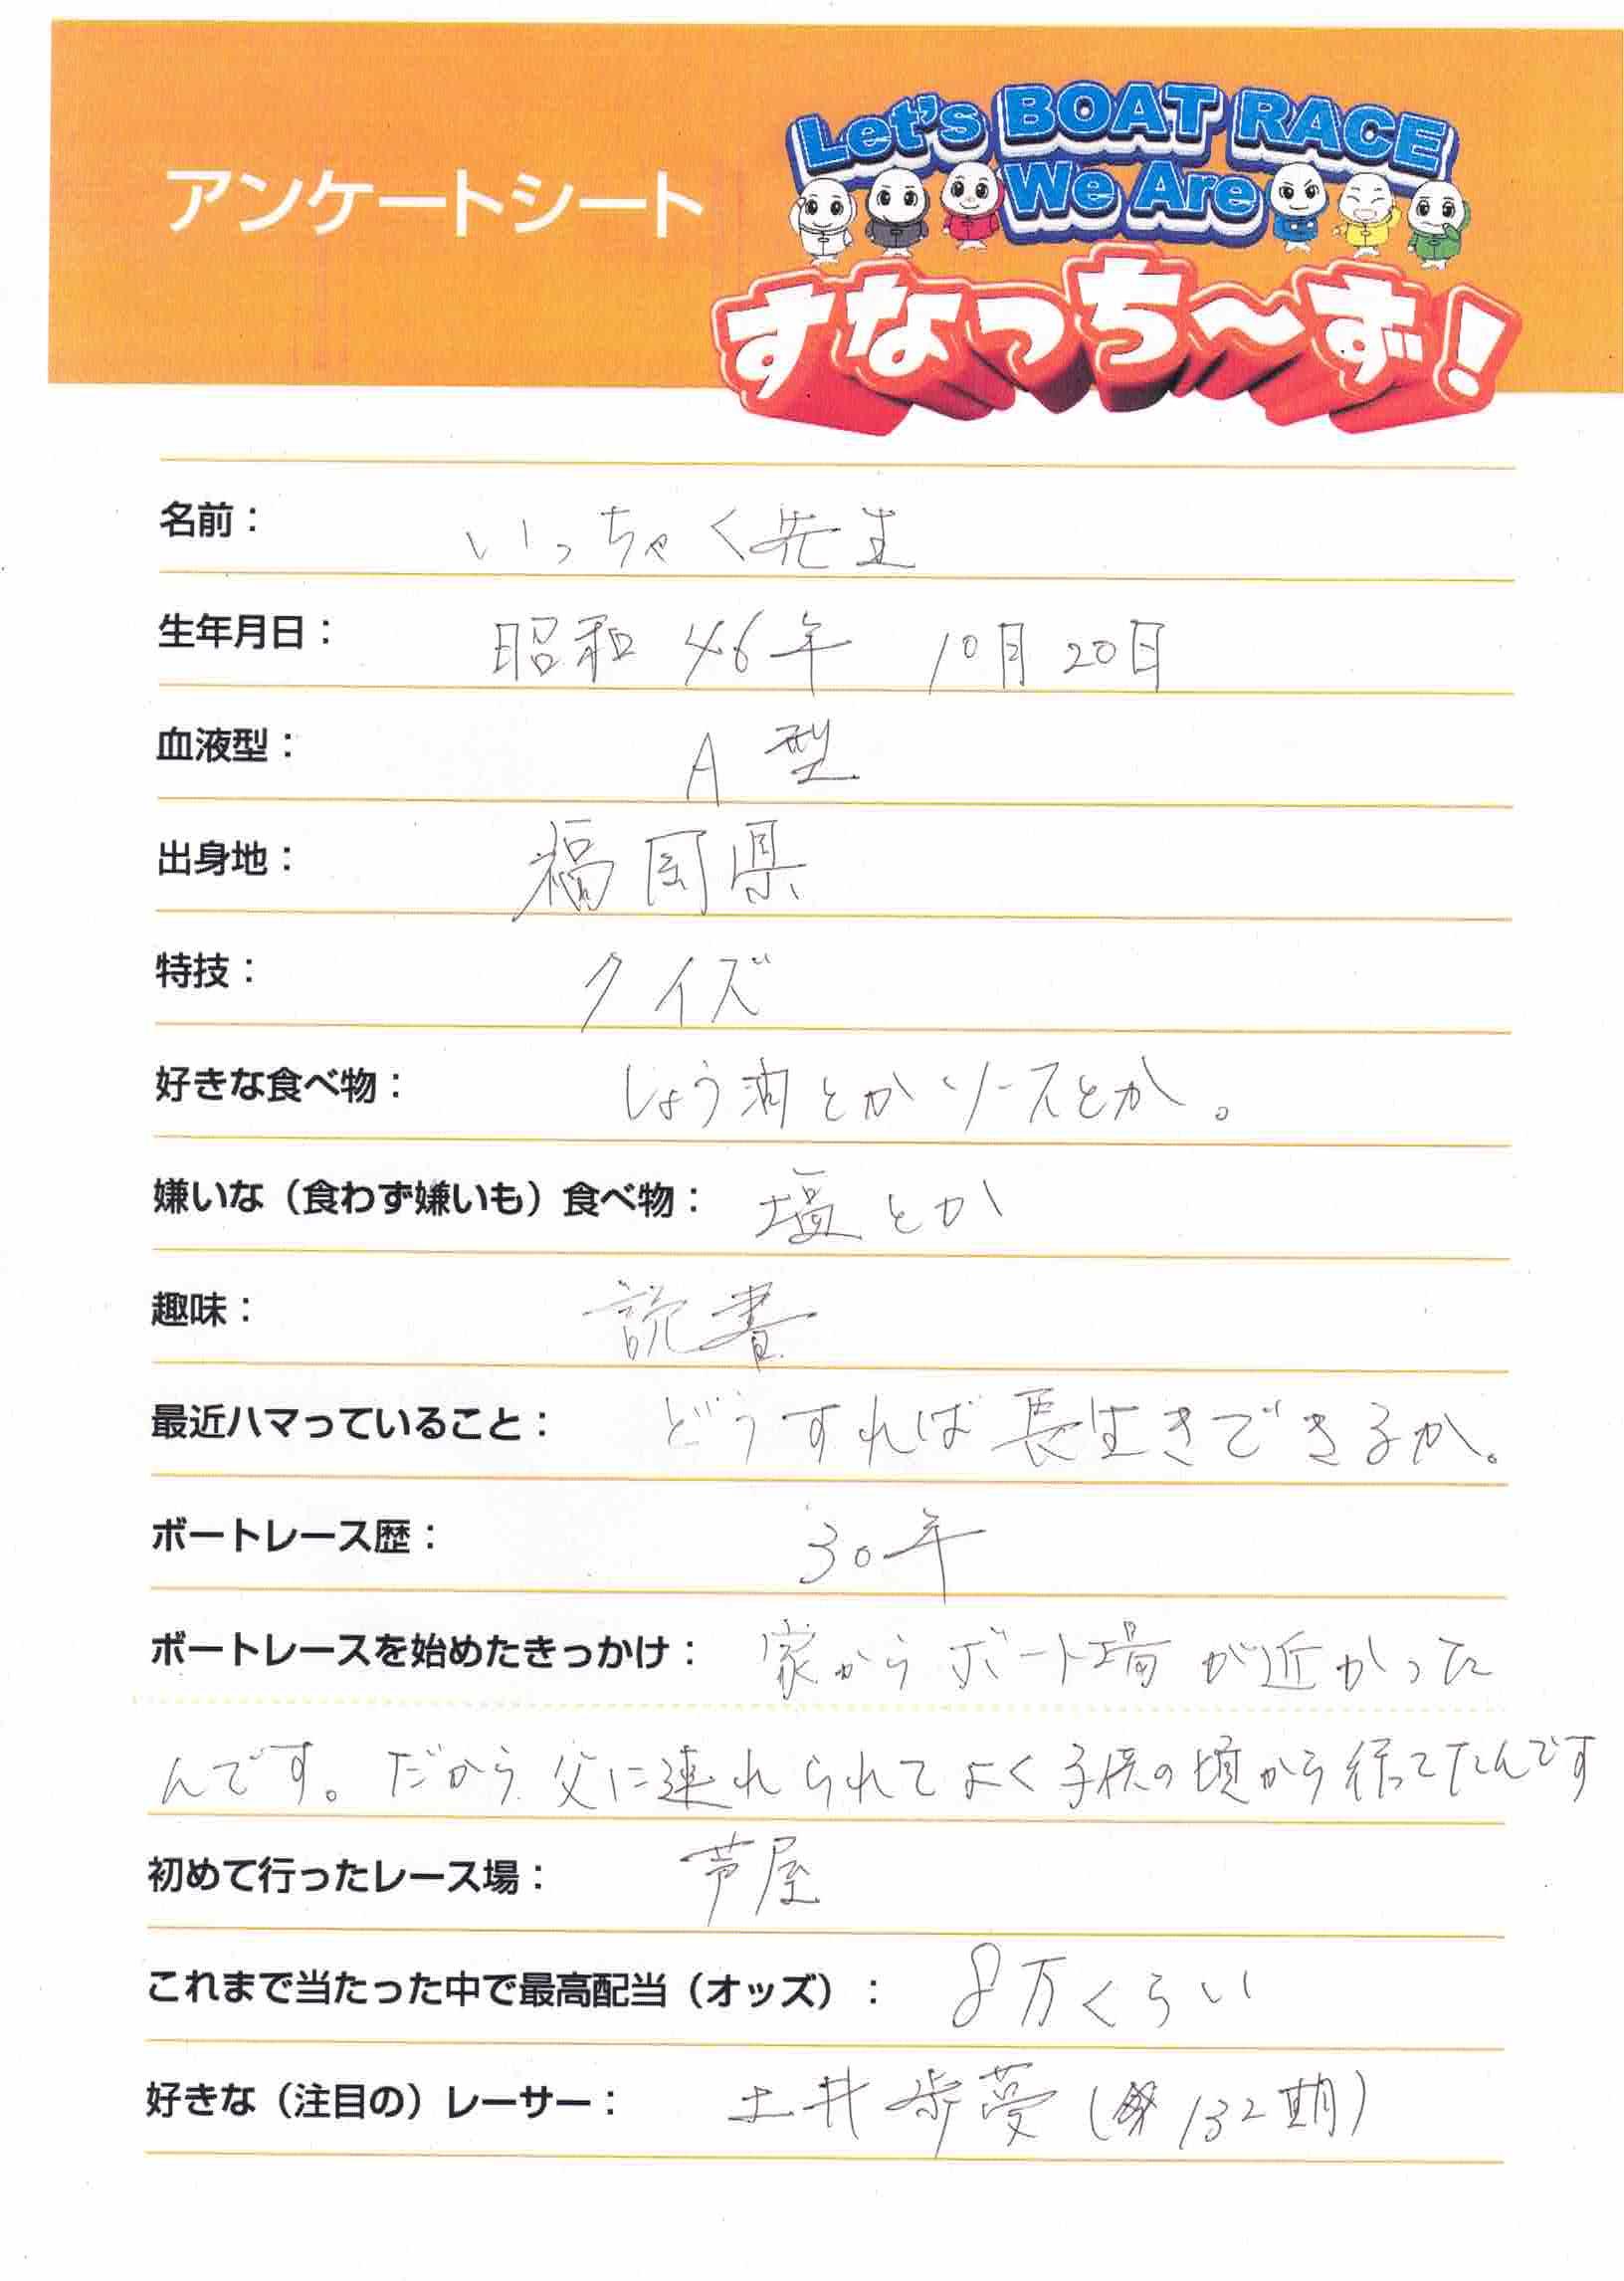 アンケートシート
Let's BOAT RACE
We Are
すなっち〜ず!
名前： いっちゃく先生
生年月日： 昭和46年 10月20日
血液型： A型
出身地： 福岡県
特技： クイズ
好きな食べ物： しょう油とかソースとか。
嫌いな（食わず嫌いも）食べ物： 塩とか
趣味： 読書
最近ハマっていること： どうすれば長生きできるか。
ボートレース歴： 30年
ボートレースを始めたきっかけ： 家からボート場が近かった
んです。だから父に連れられてよく子供の頃から行ってたんです
初めて行ったレース場： 芦屋
これまで当たった中で最高配当（オッズ）： 8万くらい
好きな（注目の）レーサー： 土井歩夢(132期)